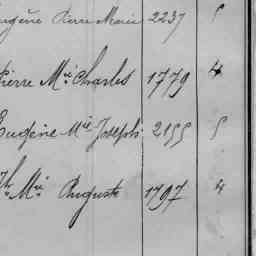 Eugène Pierre Marie 2237 5
Pierre Mie Charles 1779 4
Eugène Mie Joseph 2155 5
Jh Mie Auguste 1797 4